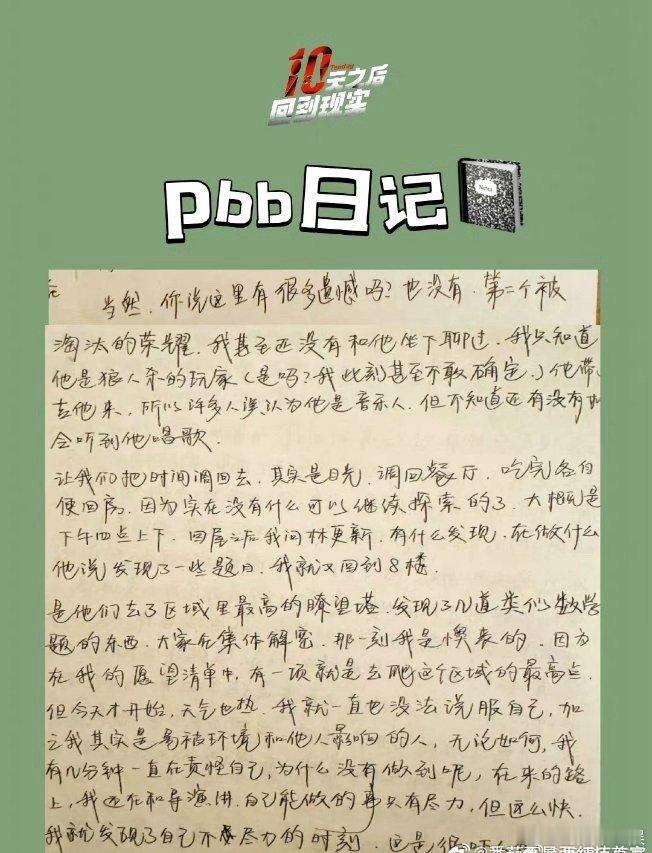 10
Tenday
天之后
回到现实
pbb日记
Notes
当然,你说这里有很多遗憾吗?也没有.第二个被
淘汰的荣耀.我甚至还没有和他坐下聊过.我只知道
他是狼人杀的玩家(是吗?我此刻甚至不敢确定.)他带
吉他来,所以许多人误认为他是音乐人.但不知道还有没有机
会听到他唱歌.
让我们把时间调回去.其实是目光.调回餐厅.吃完各自
便回房.因为实在没有什么可以继续探索的了.大概是
下午四点上下.回屋之后我问林更新.有什么发现.在做什么
他说发现了一些题目.我就又回到8楼.
是他们去了区域里最高的瞭望塔.发现了几道类似数学
题的东西.大家在集体解密.那一刻我是懊丧的.因为
在我的愿望清单中,有一项就是去爬这个区域的最高点.
但今天才开始,天气也热.我就一直也没法说服自己,加
之我其实是易被环境和他人影响的人,无论如何,我
有几分钟一直在责怪自己,为什么没有做到呢,在来的路
上,我还在和导演讲.自己能做的事只有尽力,但这么快.
我就发现了自己不尽力的时刻.这是很